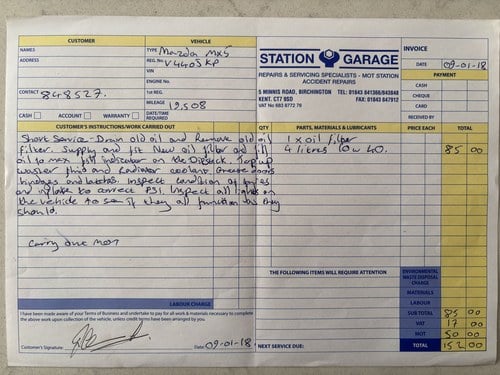 CUSTOMER
VEHICLE
INVOICE
NAMES
ADDRESS
CONTACT 848527.
TYPE Mazda MX5
REG. No.
VIN
ENGINE No.
1st REG.
MILEAGE 12,508
TYRE/RADIO
CASH ACCOUNT WARRANTY
DATE OF REPAIR
STATION GARAGE
REPAIRS & SERVICING SPECIALISTS - MOT STATION
ACCIDENT REPAIRS
5 MINNIS ROAD, BIRCHINGTON
KENT. CT7 9SD
TEL: 01843 841366/843848
FAX: 01843 847912
DATE 09-01-18
PAYMENT
CASH
CHEQUE
CARD
RECEIVED BY
CUSTOMER'S INSTRUCTIONS/WORK CARRIED OUT
QTY PARTS, MATERIALS & LUBRICANTS PRICE EACH TOTAL
Short Service. Drain old oil and Remove old oil
filter. Supply and fit New oil filter and fill
oil to max fill indicator on the Dipstick. Top up
washer fluid and Radiator coolant. Grease doors
hindges and latches. Inspect condition of tyres
and inflate to correct PSI. Inspect all lights on
the vehicle to see if they all function as they
should.
Carry out MOT
1 x oil filter
4 litres 10w 40. 85 00
THE FOLLOWING ITEMS WILL REQUIRE ATTENTION
ENVIRONMENTAL
WASTE DISPOSAL
CHARGE
MATERIALS
LABOUR
SUB TOTAL 85 00
VAT 17 00
MOT 50 00
TOTAL 152 00
LABOUR CHARGE
I have been made aware of your Terms of Business and undertake to pay for all work & materials necessary to
complete the above work upon collection of the vehicle, unless credit terms have been arranged by you.
Customer's Signature:
Date: 09-01-18
NEXT SERVICE DUE: